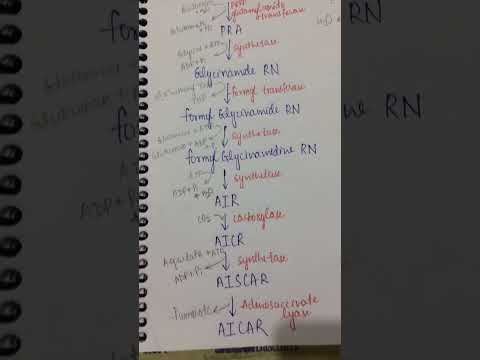 PRPP
glutamyl amido
transferase
PRA
Glycine + ATP
ADP + Pi
synthetase
Glycinamide RN
formyl transferase
formyl Glycinamide RN
Glutamine + ATP
Glutamate + ADP + Pi
synthetase
formyl Glycinamidine RN
ATP
ADP + Pi
+ H2O
synthetase
AIR
CO2
carboxylase
AICR
Aspartate + ATP
ADP + Pi
synthetase
AISCAR
Fumarate
Adenosuccinate
lyase
AICAR